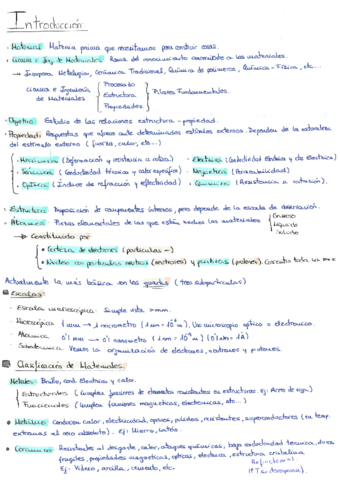 Introducción
· Material: Materia prima que necesitamos para construir cosas.
· Ciencia e Ing. de Materiales: Rama del conocimiento concerniente a los materiales.
→ Incorpora Metalurgia, Cerámica Tradicional, Química de polímeros, Química-Física, etc...
Ciencia e Ingeniería de Materiales { Procesado
Estructura
Propiedades. } Pilares Fundamentales.
· Objetivo: Estudio de las relaciones estructura - propiedad.
· Propiedad: Respuestas que ofrece ante determinados estímulos externos. Dependen de la naturaleza
del estímulo externo (fuerza, calor, etc...)
· Mecánica (Deformación y resistencia a rotura).
· Térmica (Conductividad térmica y calor específico)
· Óptica (Índice de refracción y reflectividad)
· Eléctrica (Conductividad Eléctrica y cte Dieléctrica)
· Magnética (Permeabilidad)
· Química (Resistencia a oxidación).
· Estructura: Disposición de componentes internos, pero depende de la escala de observación.
· Átomos: Piezas elementales de las que están hechos los materiales { Gaseoso
Líquido
Sólido
→ Constituido por
• Corteza de electrones (partículas -)
• Núcleo con partículas neutras (neutrones) y positivas (protones). Concentra toda la masa
Actualmente la más básica son los quarks (tres subpartículas)
Escalas:
· Escala macroscópica: Simple vista > mm.
· Microscópica: 1 mm → 1 micrometro (1 µm = 10⁻⁶ m). Uso microscopio óptico o electrónico.
→ 0'1 nanometro (1 nm = 10⁻⁹ m) (0'1 nm = 1Å)
· Subatómica: Vemos la organización de electrones, neutrones y protones.
Clasificación de Materiales:
Metales: Brillo, cond. Eléctrica y calor.
Estructurales (Cumplen funciones de elementos resistentes en estructuras. ej: Acero de vigas)
Funcionales (Cumplen funciones magnéticas, electrónicas, etc...)
• Metálicos: Conducen calor, electricidad, opacos, pulidos, resistentes, superconductores (en temp.
extremas al cero absoluto). Ej: Hierro, latón.
• Cerámicos: Resistentes al desgaste, calor, ataques químicos, baja conductividad térmica, duros
frágiles, propiedades magnéticas, ópticas, eléctrica, estructura cristalina
Ej: Vidrio, arcilla, cemento, etc.
Refractarios